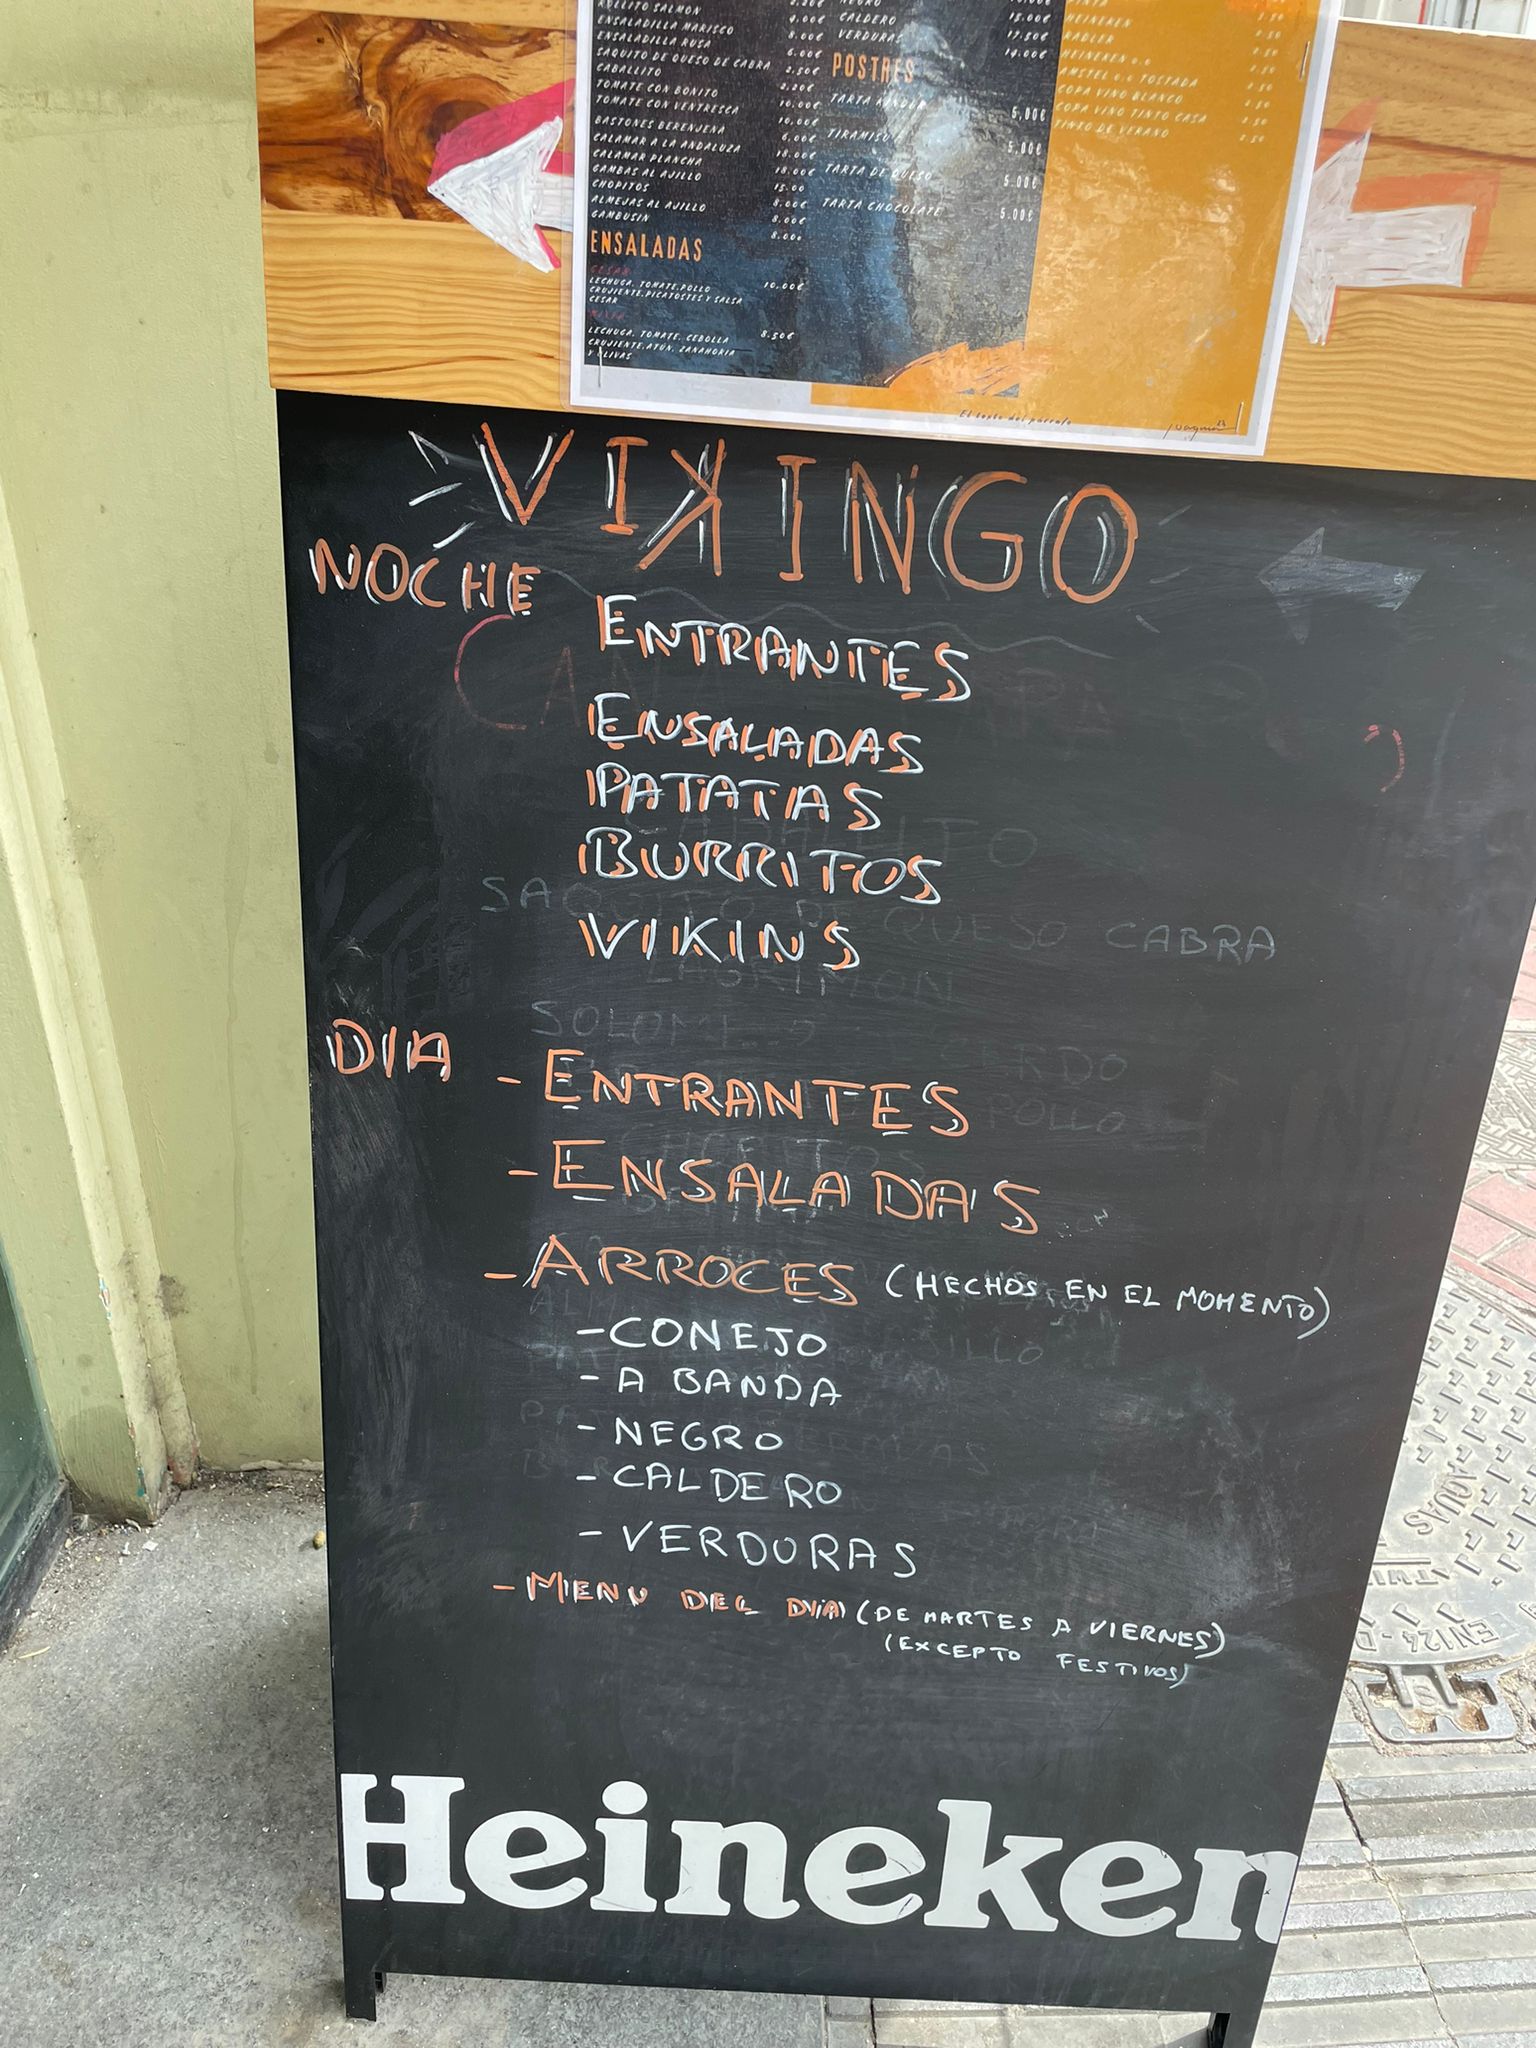 ROLLITO SALMON 2.20€
ENSALADILLA MARISCO 4.00€
ENSALADILLA RUSA 8.00€
SAQUITO DE QUESO DE CABRA 6.00€
CABALLITO 2.50€
TOMATE CON BONITO 2.20€
TOMATE CON VENTRESCA 10.00€
BASTONES BERENJENA 10.00€
CALAMAR A LA ANDALUZA 6.00€
CALAMAR PLANCHA 18.00€
GAMBAS AL AJILLO 18.00€
CHOPITOS 15.00
ALMEJAS AL AJILLO 8.00€
GAMBUSIN 8.00€
8.00€
ENSALADAS
CESAR
LECHUGA, TOMATE, POLLO 10.00€
CRUJIENTE, PICATOSTES Y SALSA
CESAR
LECHUGA, TOMATE, CEBOLLA 8.50€
CRUJIENTE, ATÚN, ZANAHORIA
Y OLIVAS
NEGRO
CALDERO 15.00€
VERDURAS 17.50€
14.00€
POSTRES
TARTA 5,00€
TIRAMISU 5,00€
TARTA DE QUESO 5.00€
TARTA CHOCOLATE 5.00€
HEINEKEN
RADLER
HEINEKEN 0.0
AMSTEL 0.0 TOSTADA
COPA VINO BLANCO
COPA VINO TINTO CASA
TINTO DE VERANO 2.50
VIKINGO
NOCHE
ENTRANTES
ENSALADAS
PATATAS
BURRITOS
VIKINS
SAQUITO DE QUESO CABRA
DIA
- ENTRANTES
- ENSALADAS
- ARROCES (HECHOS EN EL MOMENTO)
- CONEJO
- A BANDA
- NEGRO
- CALDERO
- VERDURAS
- MENU DEL DIA (DE MARTES A VIERNES)
(EXCEPTO FESTIVOS)
Heineken
AGUAS
EN124-D